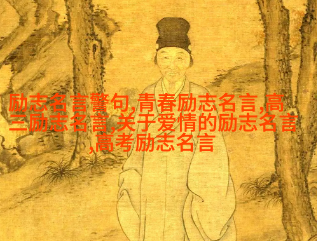 励志名言警句,青春励志名言,高
三励志名言,关于爱情的励志名言
,高考励志名言